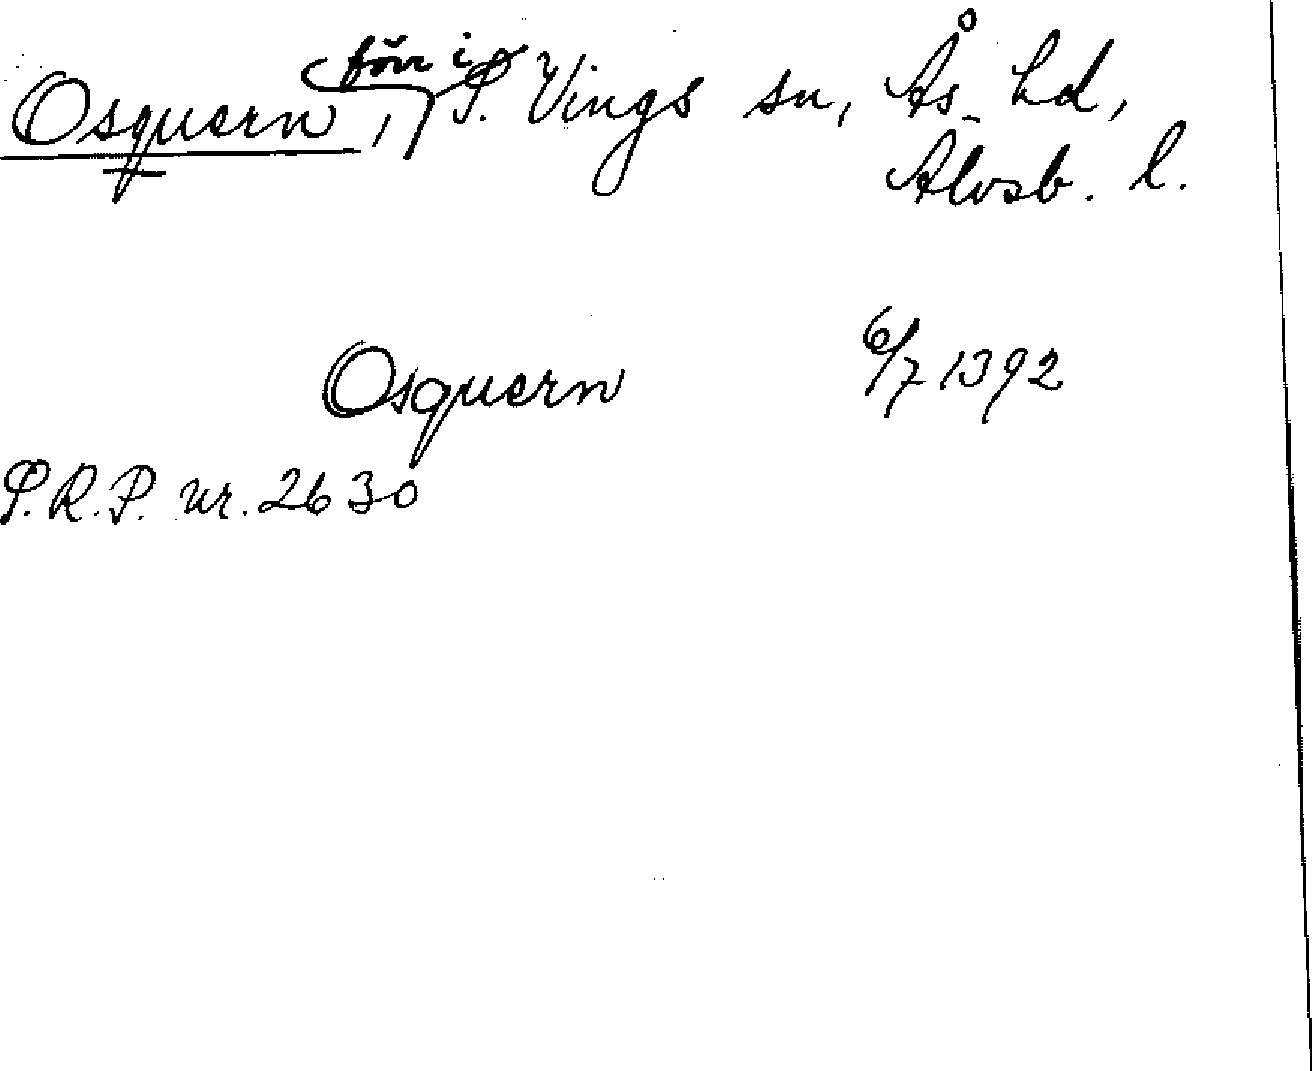 Osquern, förr i S. Vings sn, Ås hd,
Älvsb. l.
Osquern 6/7 1392
S.R.P. nr. 2630